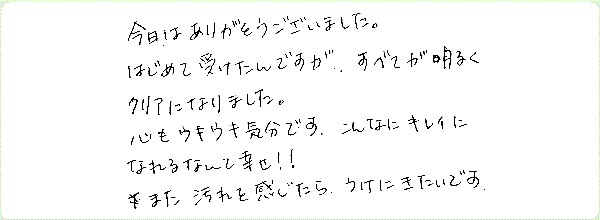 今日はありがとうございました。
はじめて受けたんですが、すべてが明るく
クリアになりました。
心もウキウキ気分です。こんなにキレイに
なれるなんて幸せ!!
*また汚れを感じたら、うけにきたいです。